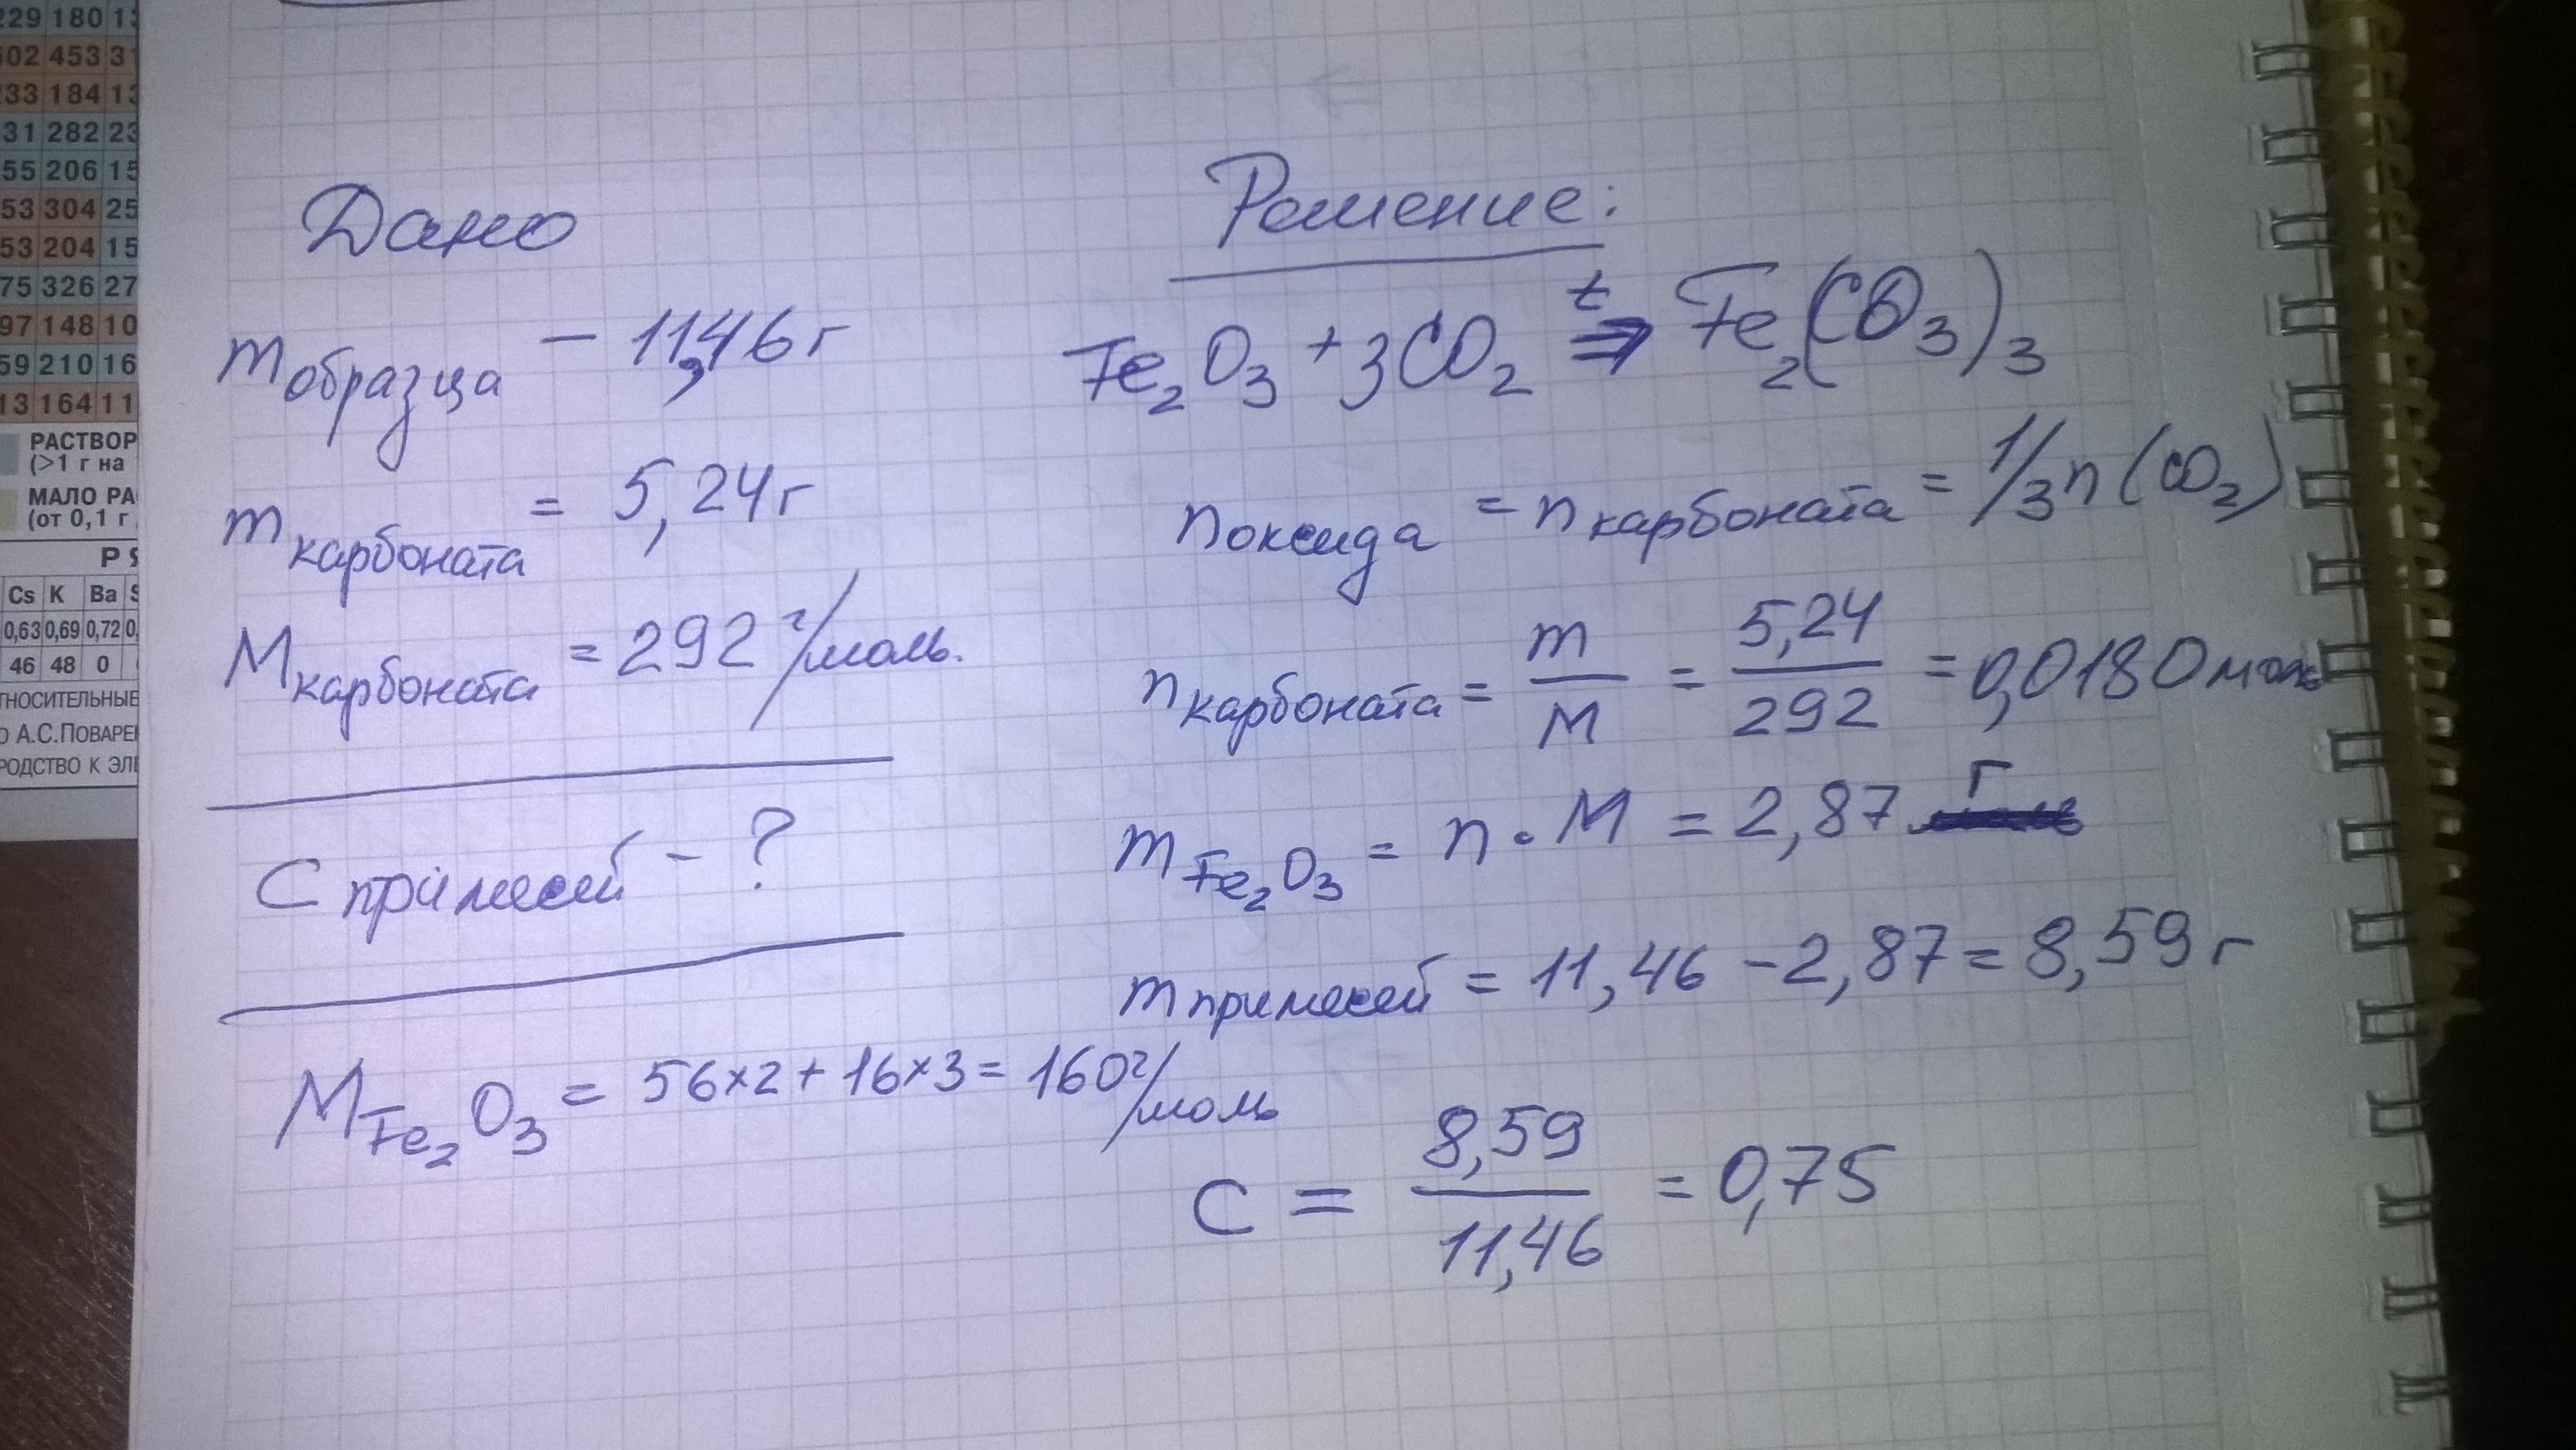 229 180 13
602 453 31
233 184 13
31 282 23
55 206 15
53 304 25
53 204 15
75 326 27
97 148 10
59 210 16
13 164 11
РАСТВОР
(>1 г на
МАЛО РА
(от 0,1 г
Р Я
Cs K Ba S
0,63 0,69 0,72 0,
46 48 0
ТНОСИТЕЛЬНЫЕ
О А.С.ПОВАРЕН
РОДСТВО К ЭЛЕ
Дано
m образца – 11,46 г
m карбоната = 5,24 г
M карбоната = 292 г/моль.
C примесей – ?
M Fe₂O₃ = 56×2 + 16×3 = 160 г/моль
Решение:
Fe₂O₃ + 3CO₂ t⇒ Fe₂(CO₃)₃
n оксида = n карбоната = 1/3 n (CO₂)
n карбоната = m/M = 5,24/292 = 0,0180 моль
m Fe₂O₃ = n · M = 2,87 г
m примесей = 11,46 – 2,87 = 8,59 г
C = 8,59/11,46 = 0,75